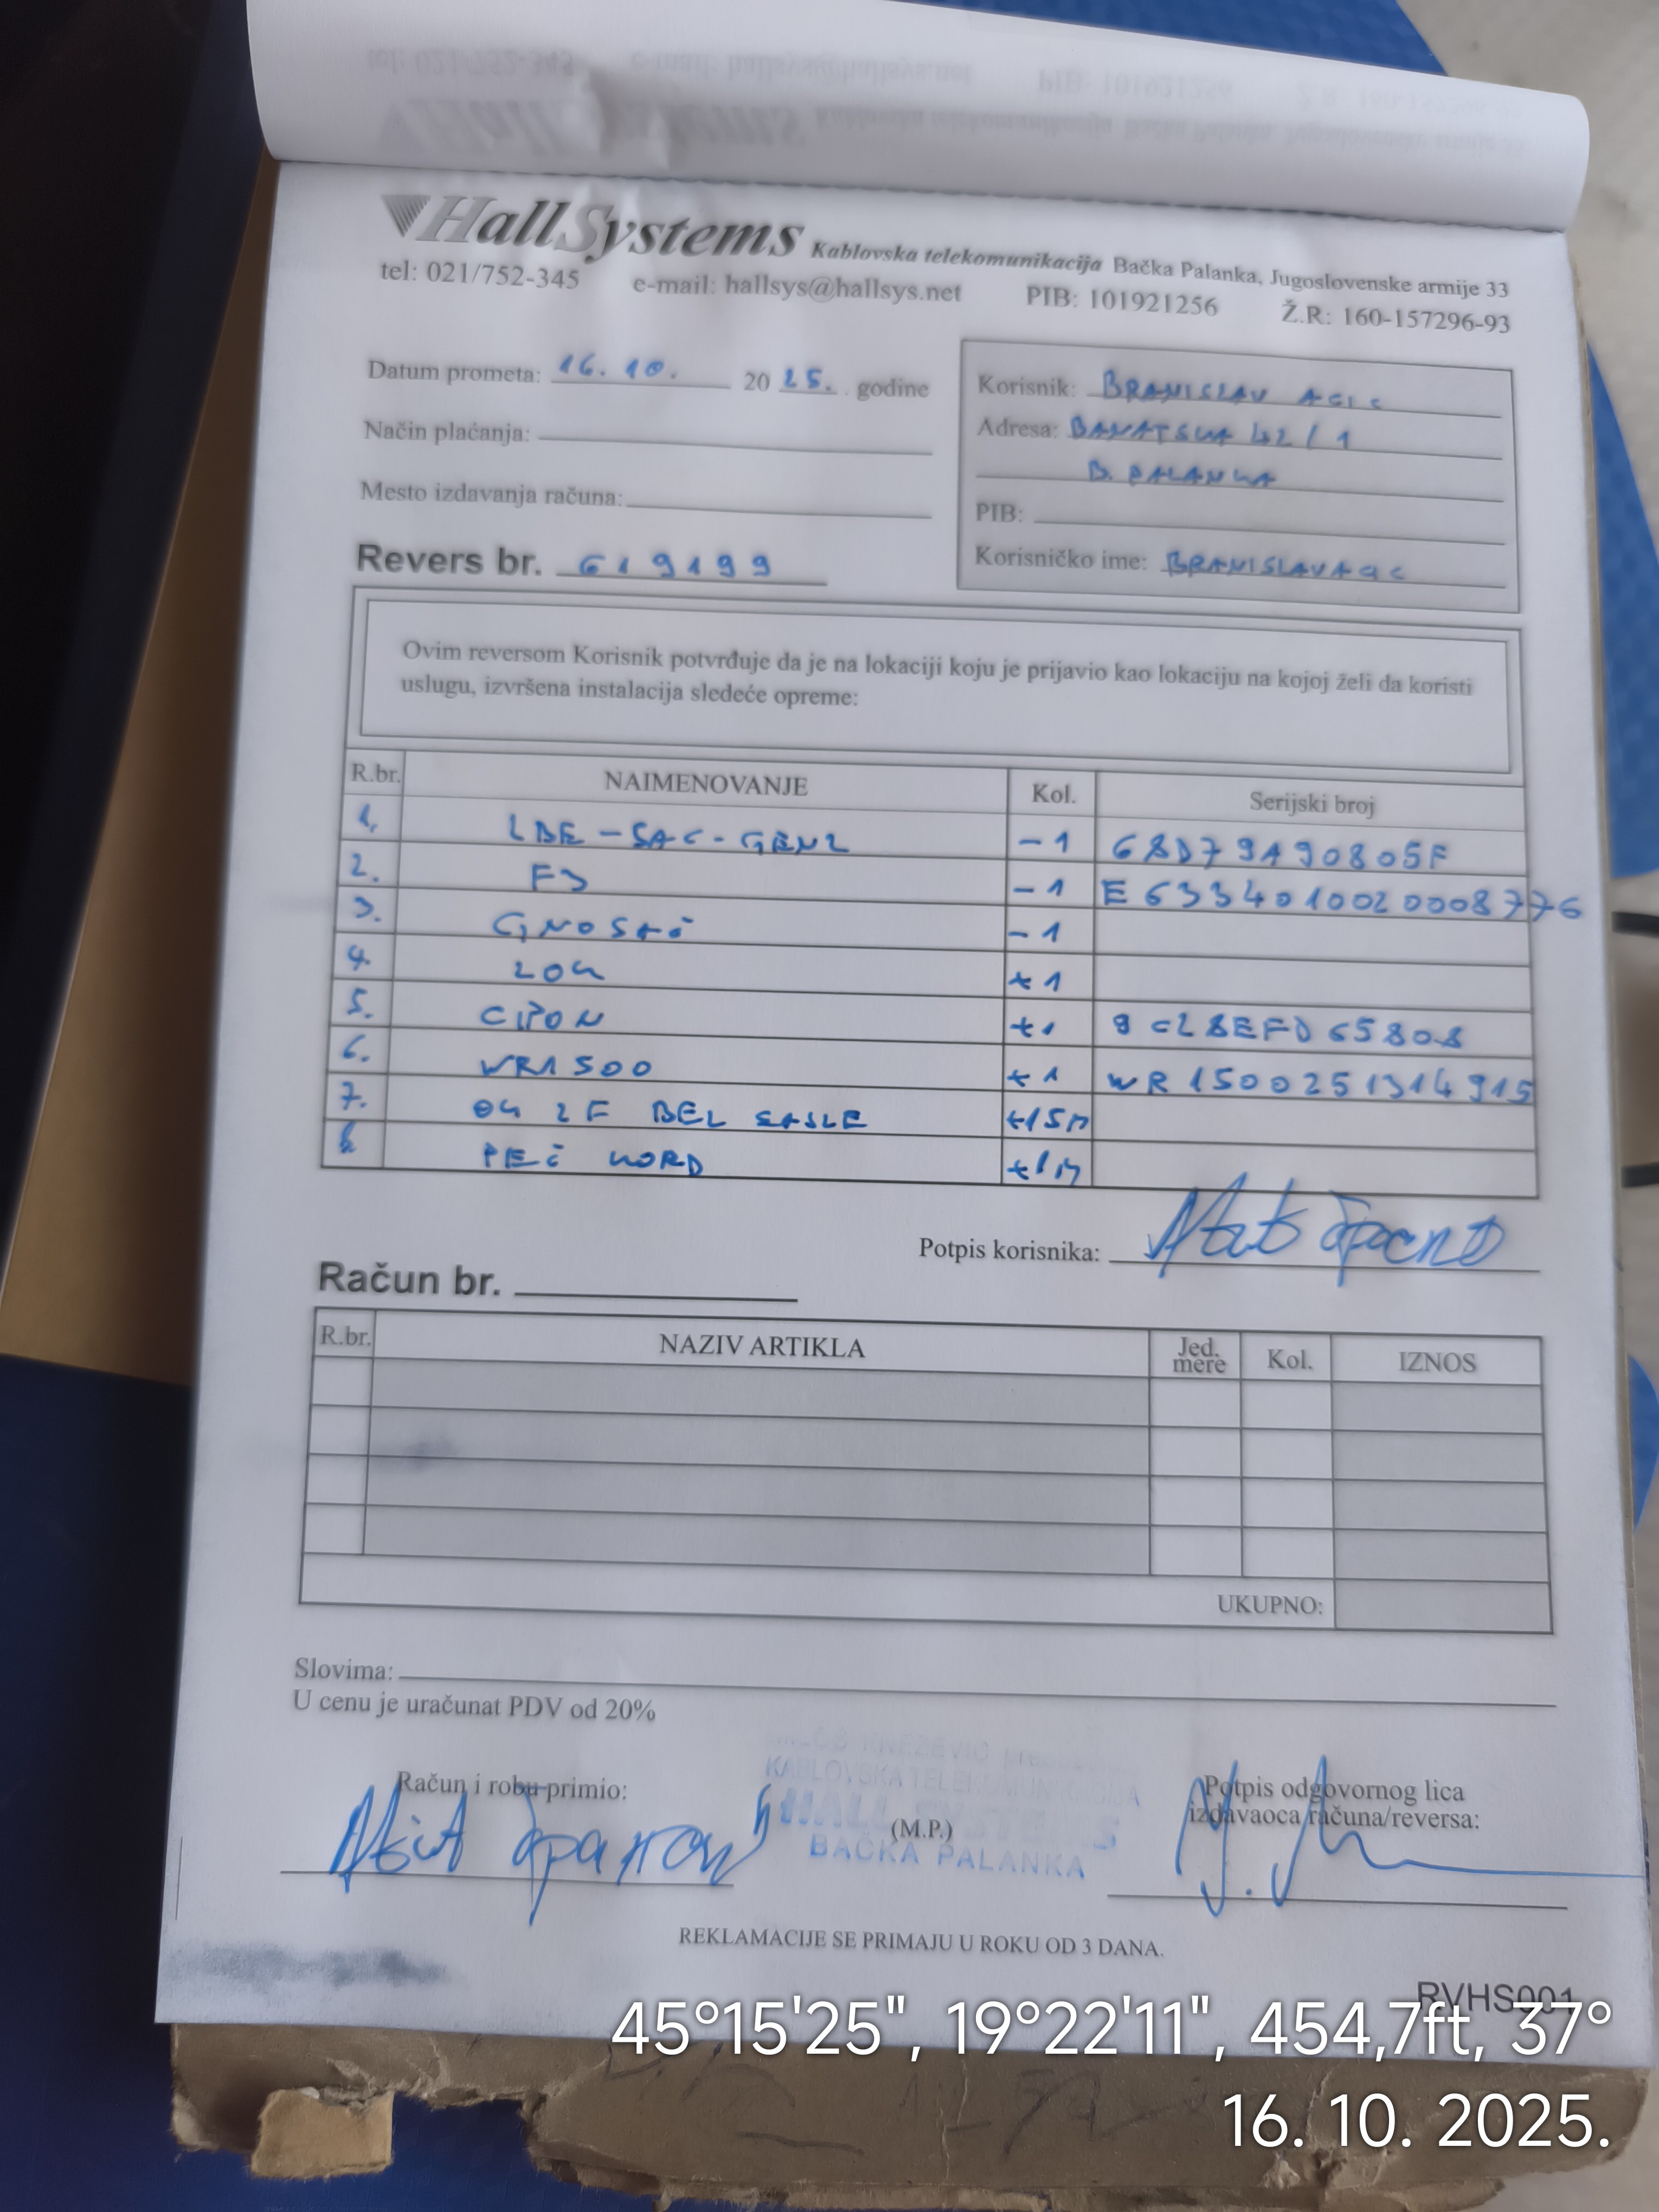 HallSystems Kablovska telekomunikacija Bačka Palanka, Jugoslovenske armije 33
tel: 021/752-345 e-mail: hallsys@hallsys.net PIB: 101921256 Ž.R: 160-157296-93
Datum prometa: 16. 10. 20 25. godine
Način plaćanja:
Mesto izdavanja računa:
Revers br. 619199
Korisnik: BRANISLAV
Adresa: BANATSKA 42/1
B. PALANKA
PIB:
Korisničko ime:
Ovim reversom Korisnik potvrđuje da je na lokaciji koju je prijavio kao lokaciju na kojoj želi da koristi
uslugu, izvršena instalacija sledeće opreme:
R.br. NAIMENOVANJE Kol. Serijski broj
1. LBE-5AC-GEN2 -1 68D79A90805F
2. -1 E6334010020008776
3. -1
4. ZOK +1
5. +1 9C28EFD65808
6. WR1500 +1 WR1500251314915
7. OK 2F BEL
8. NORD
Potpis korisnika:
Račun br.
R.br. NAZIV ARTIKLA Jed. mere Kol. IZNOS
UKUPNO:
Slovima:
U cenu je uračunat PDV od 20%
KABLOVSKA TELEKOMUNIKACIJA
HALL SYSTEMS
BAČKA PALANKA
Račun i robu primio:
(M.P.)
Potpis odgovornog lica
izdavaoca računa/reversa:
REKLAMACIJE SE PRIMAJU U ROKU OD 3 DANA.
RVHS001
45°15'25", 19°22'11", 454,7ft, 37°
16. 10. 2025.